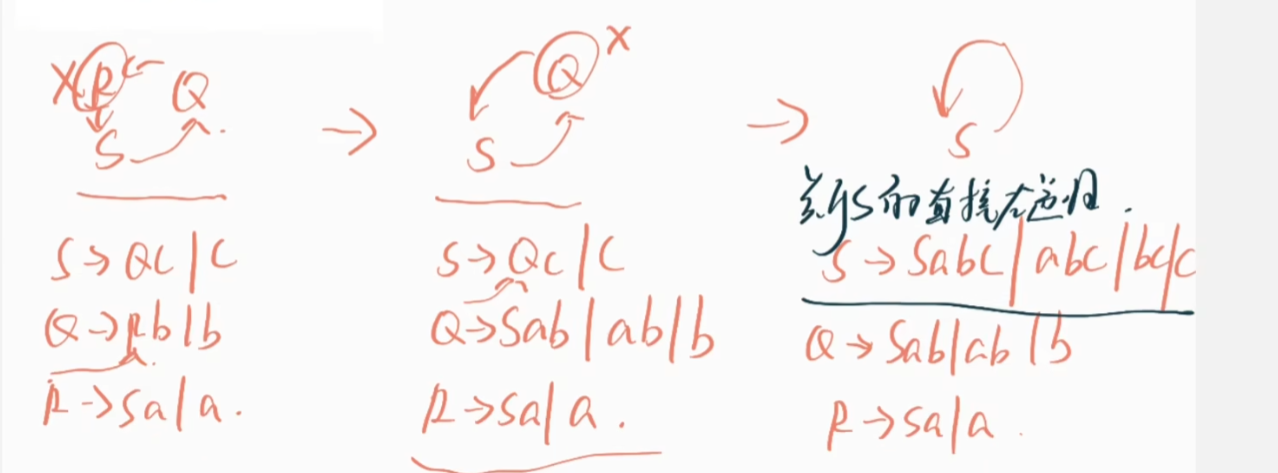 X R Q
S
S → Qc | c
Q → Rb | b
R → Sa | a .
→
Q X
S
S → Qc | c
Q → Sab | ab | b
R → Sa | a .
→
S
关于S的直接左递归 .
S → Sabc | abc | bc | c
Q → Sab | ab | b
R → Sa | a .